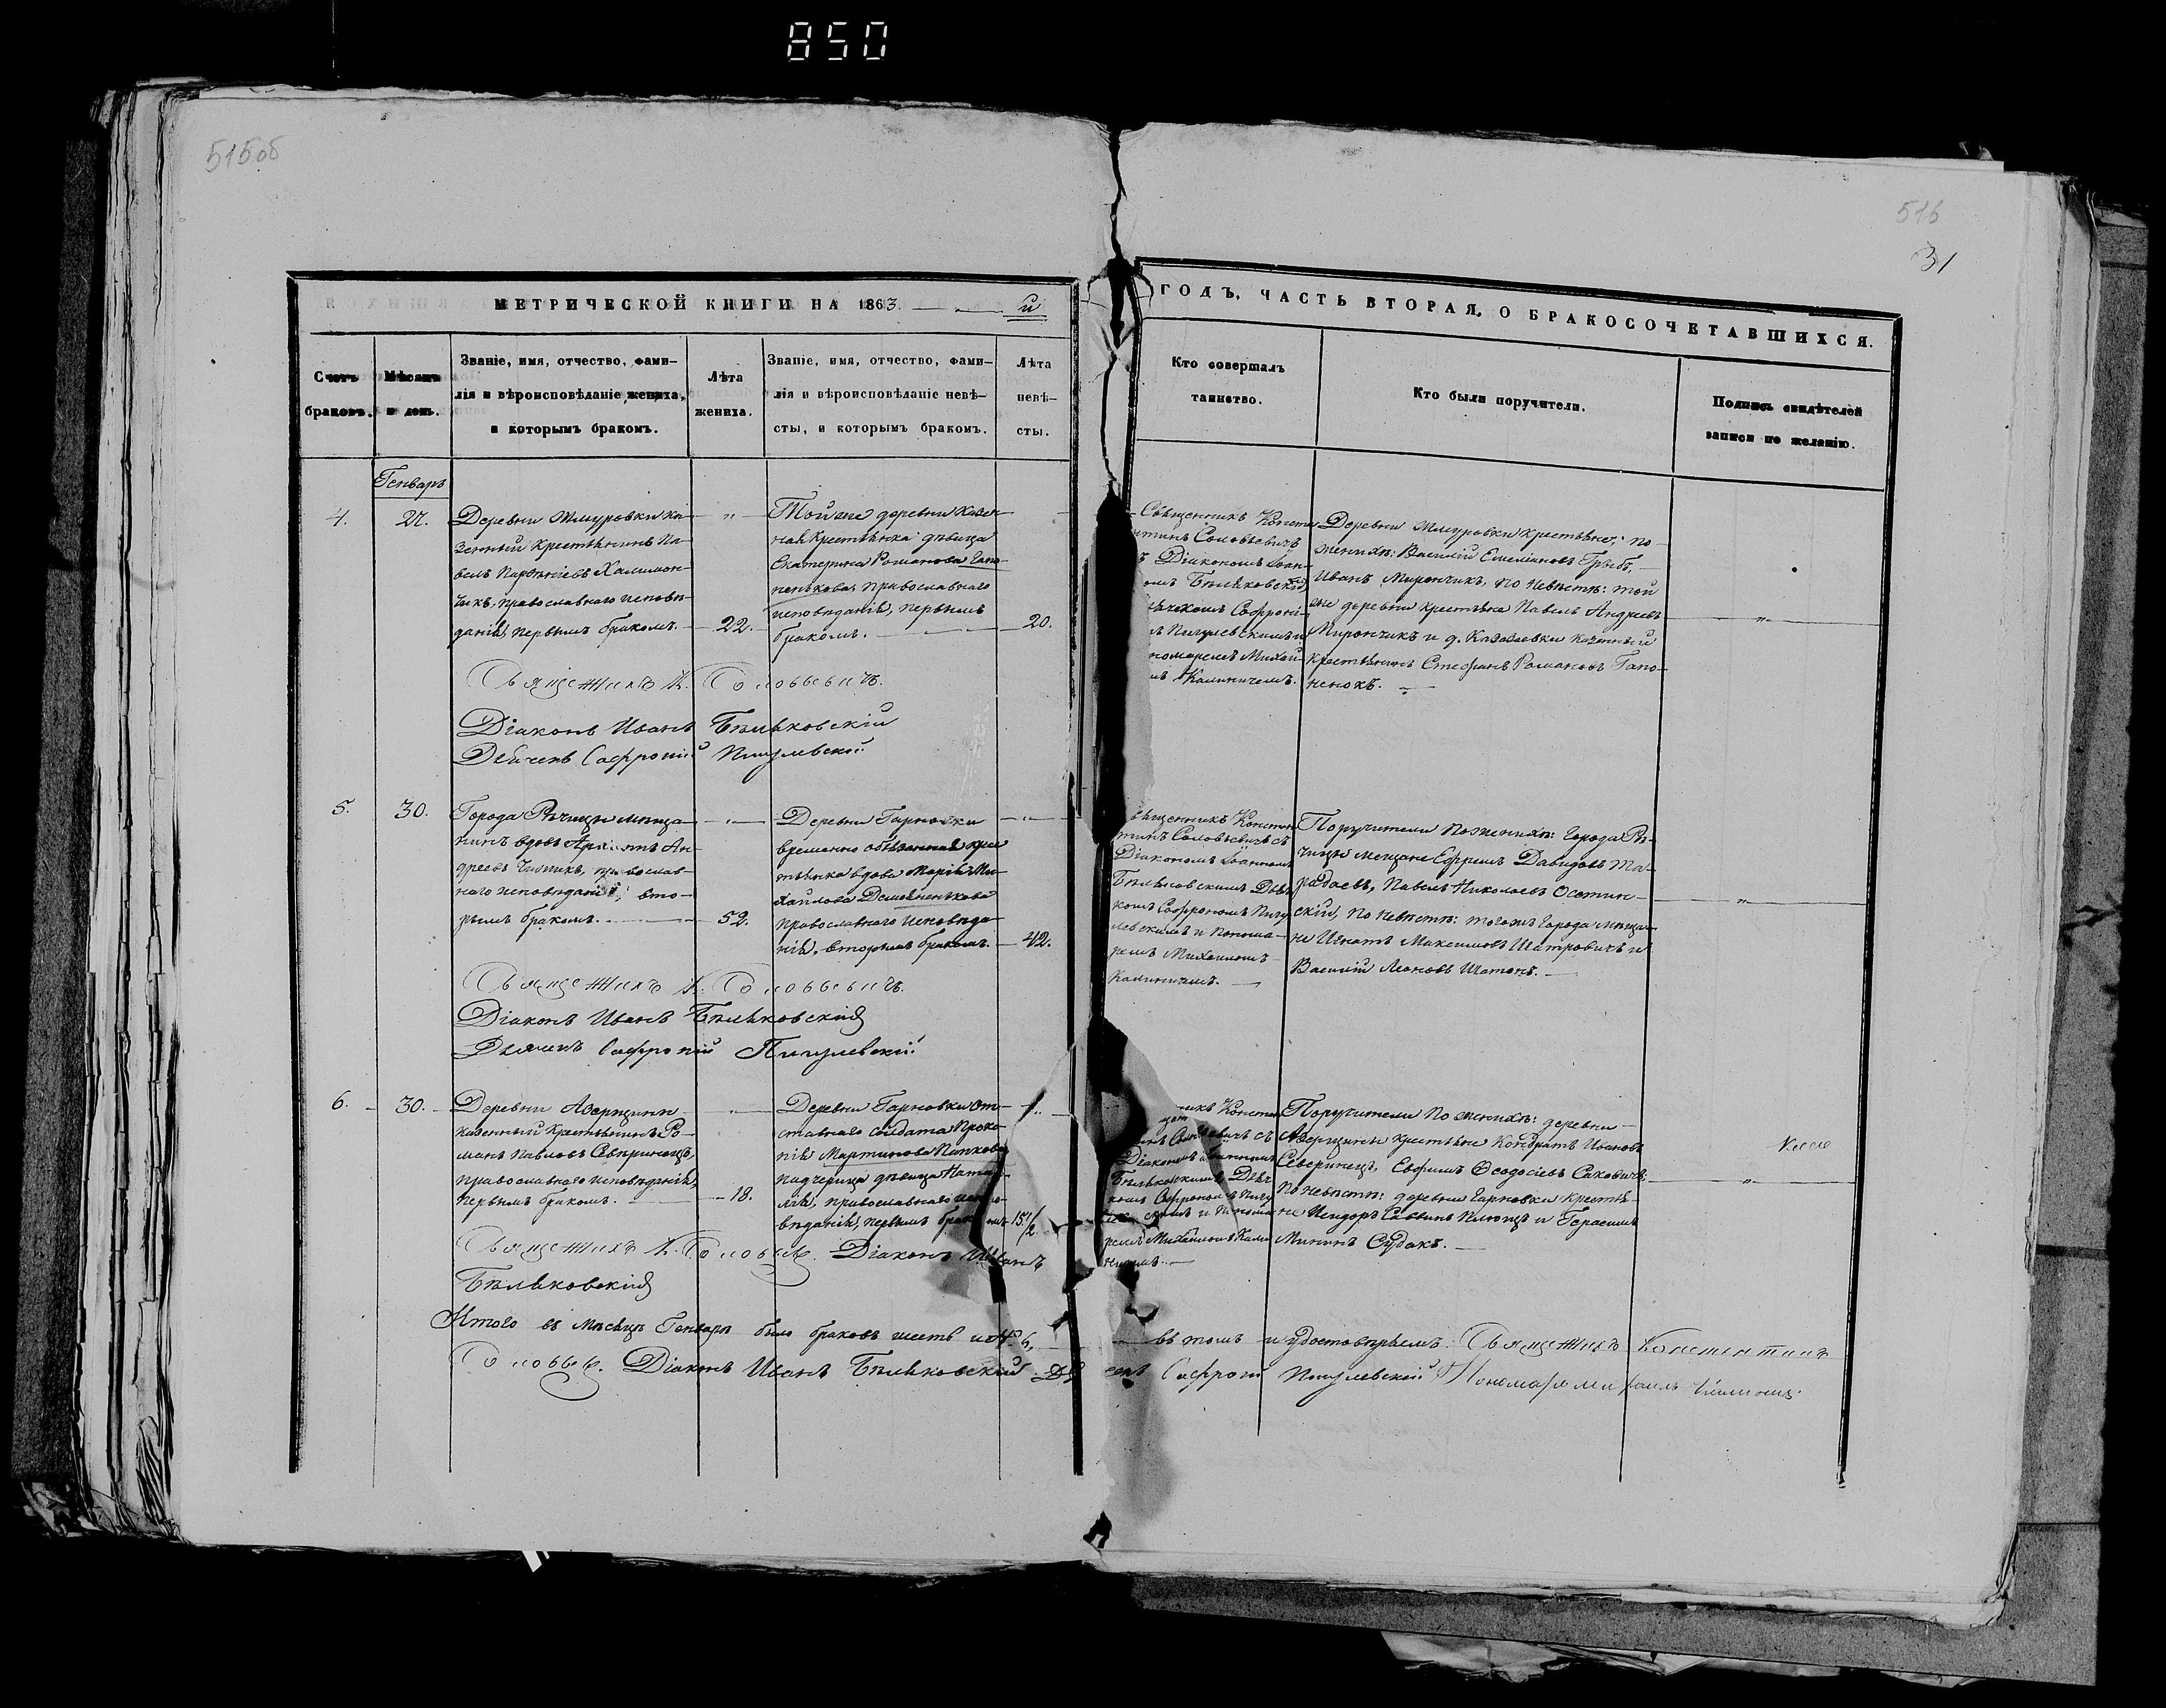 850
515об
516
31
МЕТРИЧЕСКОЙ КНИГИ НА 1863. й
ГОДЪ, ЧАСТЬ ВТОРАЯ, О БРАКОСОЧЕТАВШИХСЯ.
Счетъ
браковъ.
Мѣсяцъ
и день.
Званіе, имя, отчество, фами-
лія и вѣроисповѣданіе жениха,
и которымъ бракомъ.
Лѣта
жениха.
Званіе, имя, отчество, фами-
лія и вѣроисповѣданіе невѣ-
сты, и которымъ бракомъ.
Лѣта
невѣ-
сты.
Кто совершалъ
таинство.
Кто были поручители.
Подпись свидѣтелей
записи по желанію.
Генваръ
4.
27.
Деревни Жмуровки ка-
зенный крестьянинъ Па-
велъ Парѳеніевъ Халимон-
чикъ, православнаго исповѣ-
данія, первымъ бракомъ.
22.
Той же деревни казен-
ная крестьянка дѣвица
Екатерина Романова Гапо-
ненькова, православнаго
исповѣданія, первымъ
бракомъ.
20.
Священникъ Конста
нтинъ Соловьевичъ
ъ Діакономъ Іоан-
омъ Бѣльковскимъ
ячкомъ Софроні-
Пигулевскимъ и
номаремъ Михаи-
мъ Калиничемъ.
Деревни Жмуровки крестьяне; по
женихѣ: Василій Емеліановъ Грибъ,
Иванъ Мирончикъ, по невѣстѣ: той
же деревни крестьяне Павелъ Андреевъ
Мирончикъ и д. Казазаевки казенный
крестьянинъ Стефанъ Романовъ Гапо-
ненокъ.
Священникъ К. Соловьевичъ.
Діаконъ Иванъ Бѣльковскій
Дьячекъ Софроній Пигулевскій
5.
30.
Города Рѣчицы мѣща-
нинъ вдовъ Ан-
дреевъ Чижикъ, православ-
наго исповѣданія, вто-
рымъ бракомъ.
52.
Деревни Гарновки
временно обязанная крес
тьянка вдова Марія Ми-
хайлова Демьяненькова
православнаго исповѣда-
нія, вторымъ бракомъ.
42.
вященникъ Констан
тинъ Соловьевичъ съ
Діакономъ Іоанномъ
Бѣльковскимъ Дьяч
комъ Софроніемъ Пигу
левскимъ и Понома-
ремъ Михаиломъ
Калиничемъ.
Поручители по женихѣ: Города Рѣ-
чицы мещане Ефремъ Давидовъ Та-
радаевъ, Павелъ Николаевъ Осотин-
скій, по невѣстѣ: тогожъ Города мѣща-
не Игнатъ Максимовъ Шатровичъ и
Василій Леоновъ Шатонъ.
Священникъ К. Соловьевичъ.
Діаконъ Иванъ Бѣльковскій
Дьячекъ Софроній Пигулевскій
6.
30.
Деревни Азерщины
казенный крестьянинъ Ро-
манъ Павловъ Севринецъ,
православнаго исповѣданія,
первымъ бракомъ.
18.
Деревни Гарновки от-
ставнаго солдата Проко-
пія Мартинова Папкова
падчерица дѣвица Ната-
лія, православнаго испо-
вѣданія, первымъ бракомъ
15½
никъ Констан
Соловьевичъ съ
Діакономъ Іоанномъ
Бѣльковскимъ Дьяч
комъ Софроніемъ Пигу
скимъ и Понома
ремъ Михаиломъ Кали
ничемъ.
Поручители по женихѣ: деревни
Азерщины крестьяне Кондратъ Ивановъ
Северинецъ, Евфимъ Ѳеодосіевъ Саковичъ;
по невѣстѣ: деревни Гарновки крестья-
не Исидоръ Саввинъ Плющъ и Герасимъ
Мининъ Судакъ.
Священникъ К. Соловьев. Діаконъ Иванъ
Бѣльковскій
Итого въ мѣсяцѣ Генварѣ было браковъ шесть 6,
въ томъ и удостовѣряемъ: Священникъ Константинъ
Соловьев. Діаконъ Иванъ Бѣльковскій Дья
чекъ Софроній Пигулевскій Пономарь Михаилъ Калиничъ